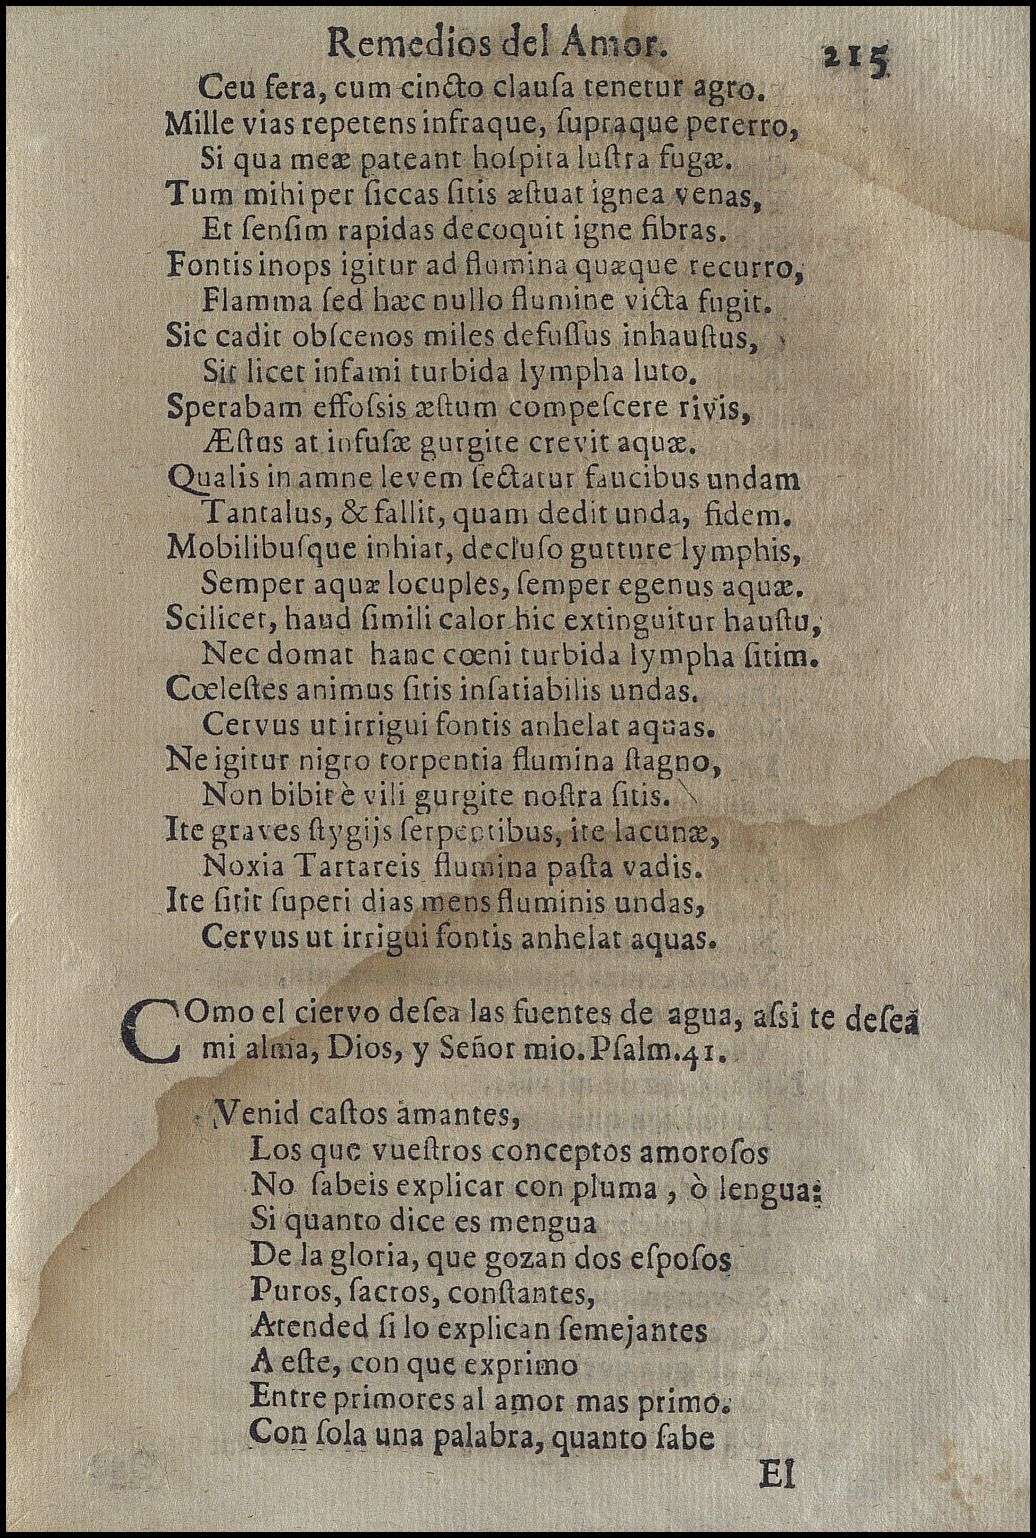 Remedios del Amor. 215
Ceu fera, cum cincto clauſa tenetur agro.
Mille vias repetens infraque, ſupraque pererro,
Si qua meæ pateant hoſpita luſtra fugæ.
Tum mihi per ſiccas ſitis æſtuat ignea venas,
Et ſenſim rapidas decoquit igne fibras.
Fontis inops igitur ad flumina quæque recurro,
Flamma ſed hæc nullo flumine victa fugit.
Sic cadit obſcenos miles defuſſus inhauſtus,
Sit licet infami turbida lympha luto.
Sperabam effoſsis æſtum compeſcere rivis,
Æſtus at infuſæ gurgite crevit aquæ.
Qualis in amne levem ſectatur faucibus undam
Tantalus, & fallit, quam dedit unda, fidem.
Mobilibuſque inhiat, decluſo gutture lymphis,
Semper aquæ locuples, ſemper egenus aquæ.
Scilicet, haud ſimili calor hic extinguitur hauſtu,
Nec domat hanc cœni turbida lympha ſitim.
Cœleſtes animus ſitis inſatiabilis undas.
Cervus ut irrigui fontis anhelat aquas.
Ne igitur nigro torpentia flumina ſtagno,
Non bibit è vili gurgite noſtra ſitis.
Ite graves ſtygijs ſerpentibus, ite lacunæ,
Noxia Tartareis flumina paſta vadis.
Ite ſitit ſuperi dias mens fluminis undas,
Cervus ut irrigui fontis anhelat aquas.
COmo el ciervo deſea las fuentes de agua, aſsi te deſea
mi alma, Dios, y Señor mio. Pſalm. 41.
Venid caſtos amantes,
Los que vueſtros conceptos amoroſos
No ſabeis explicar con pluma, ò lengua:
Si quanto dice es mengua
De la gloria, que gozan dos eſpoſos
Puros, ſacros, conſtantes,
Atended ſi lo explican ſemejantes
A eſte, con que exprimo
Entre primores al amor mas primo.
Con ſola una palabra, quanto ſabe
El